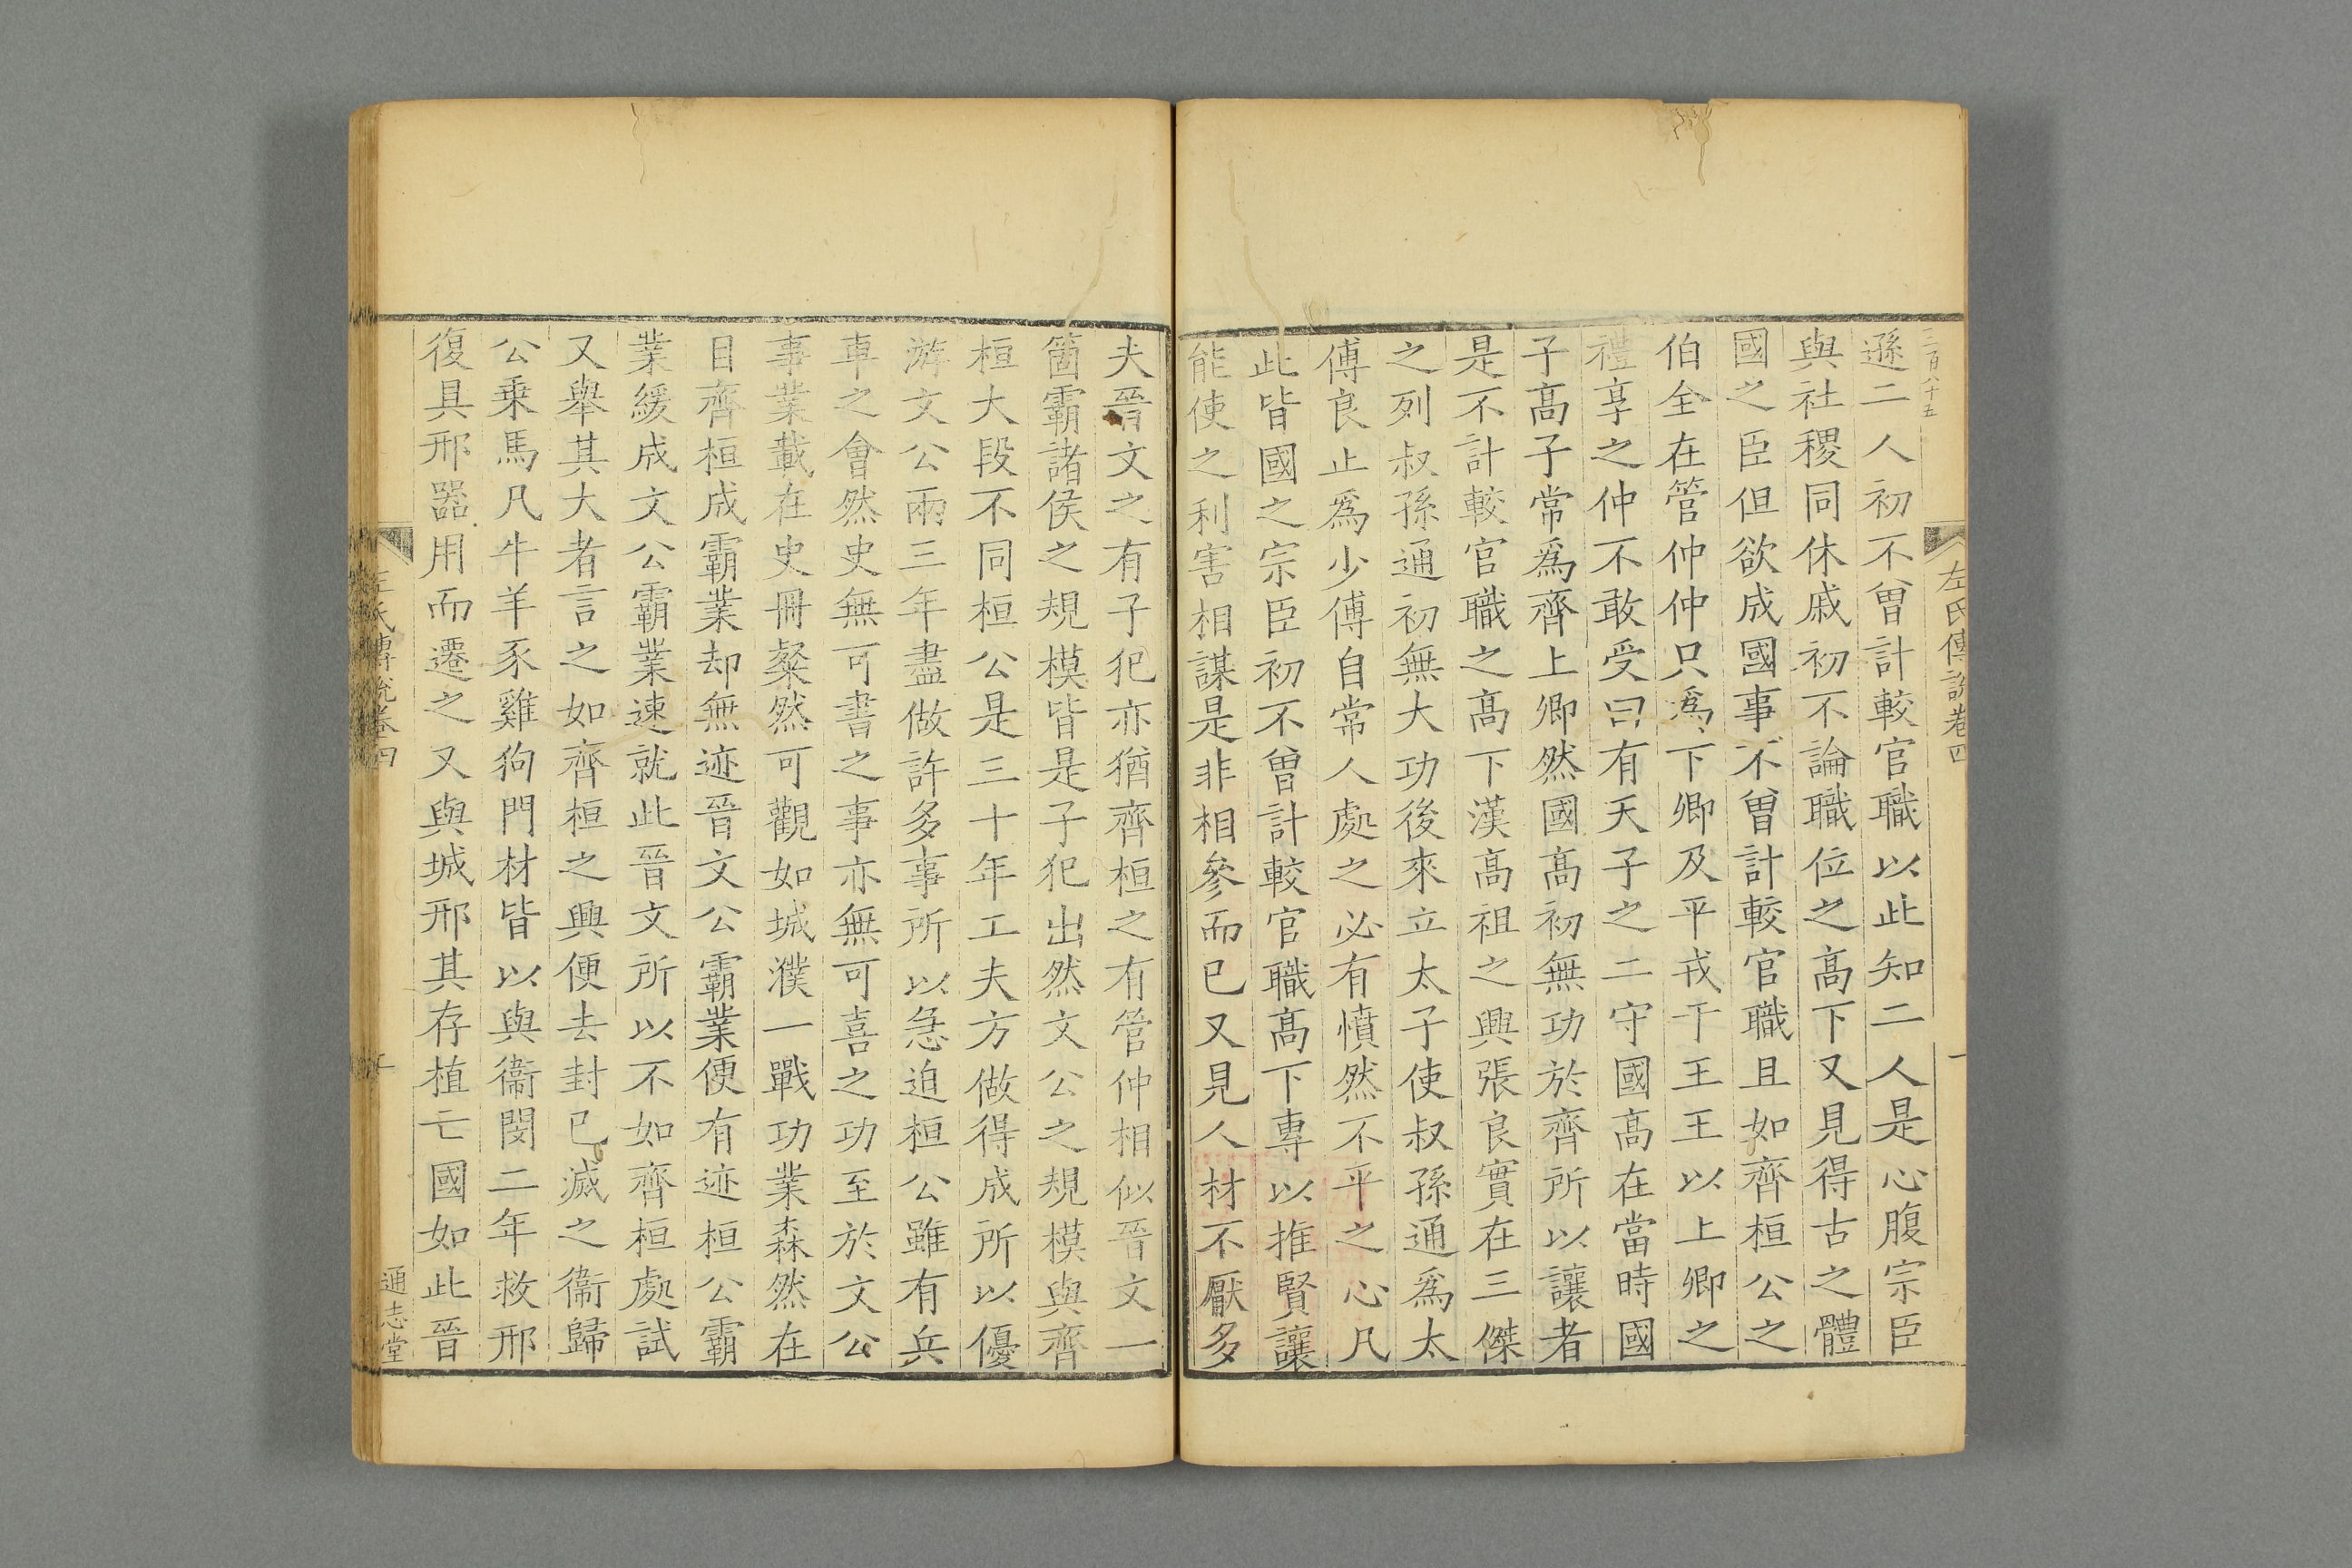 三百八十五
左氏傳說卷四
遜二人初不曾計較官職以此知二人是心腹宗臣
與社稷同休戚初不論職位之高下又見得古之體
國之臣但欲成國事不曾計較官職且如齊桓公之
伯全在管仲仲只爲下卿及平戎于王王以上卿之
禮享之仲不敢受曰有天子之二守國高在當時國
子高子常爲齊上卿然國高初無功於齊所以讓者
是不計較官職之高下漢高祖之興張良實在三傑
之列叔孫通初無大功後來立太子使叔孫通爲太
傅良止爲少傅自常人處之必有憤然不平之心凡
此皆國之宗臣初不曾計較官職高下專以推賢讓
能使之利害相謀是非相參而已又見人材不厭多
夫晉文之有子犯亦猶齊桓之有管仲相似晉文一
箇霸諸侯之規模皆是子犯出然文公之規模與齊
桓大段不同桓公是三十年工夫方做得成所以優
游文公兩三年盡做許多事所以急迫桓公雖有兵
車之會然史無可書之事亦無可喜之功至於文公
事業載在史冊粲然可觀如城濮一戰功業森然在
目齊桓成霸業却無迹晉文公霸業便有迹桓公霸
業緩成文公霸業速就此晉文所以不如齊桓處試
又舉其大者言之如齊桓之興便去封已滅之衞歸
公乗馬凡牛羊豕雞狗門材皆以與衞閔二年救邢
復具邢器用而遷之又與城邢其存植亡國如此晉
左氏傳說卷四
通志堂